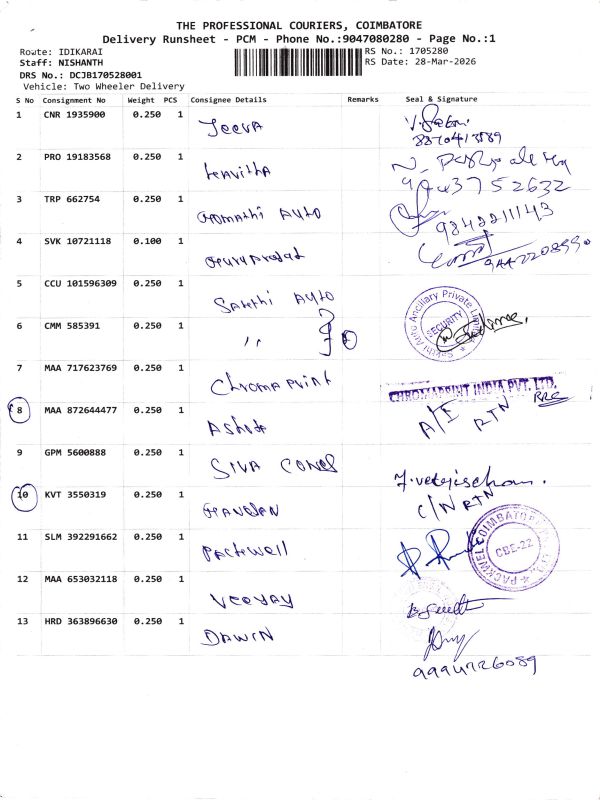 THE PROFESSIONAL COURIERS, COIMBATORE
Delivery Runsheet - PCM - Phone No.:9047080280 - Page No.:1
Route: IDIKARAI
RS No.: 1705280
Staff: NISHANTH
RS Date: 28-Mar-2026
DRS No.: DCJB170528001
Vehicle: Two Wheeler Delivery
S No Consignment No Weight PCS Consignee Details Remarks Seal & Signature
1 CNR 1935900 0.250 1 Jeeva
8870413589
2 PRO 19183568 0.250 1 Kavitha
3 TRP 662754 0.250 1 Gomathi Auto
9842211143
4 SVK 10721118 0.100 1 Guruprasad
5 CCU 101596309 0.250 1 Sakthi Auto
Sakthi Auto Ancillary Private Limited
SECURITY
6 CMM 585391 0.250 1 ,,
7 MAA 717623769 0.250 1 Chromaprint
CHROMAPRINT INDIA PVT. LTD.
8 MAA 872644477 0.250 1 Ashok
A/I RTN
9 GPM 5600888 0.250 1 Siva Cones
10 KVT 3550319 0.250 1
C/N RTN
11 SLM 392291662 0.250 1 Packwell
CBE-22
12 MAA 653032118 0.250 1 Veejay
13 HRD 363896630 0.250 1 Dawin
9994726089